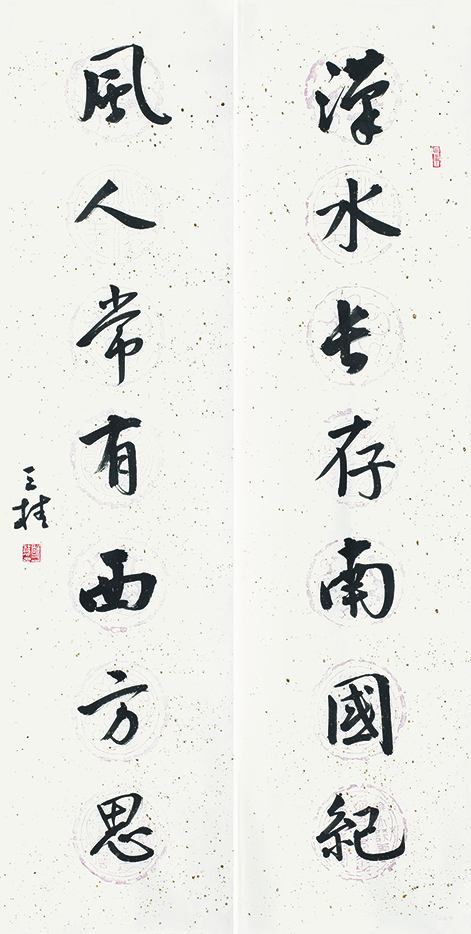 漢水長存南國紀
風人常有西方思
三桂